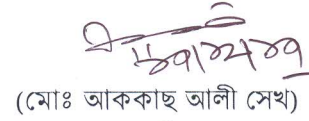 (মোঃ আককাছ আলী সেখ)